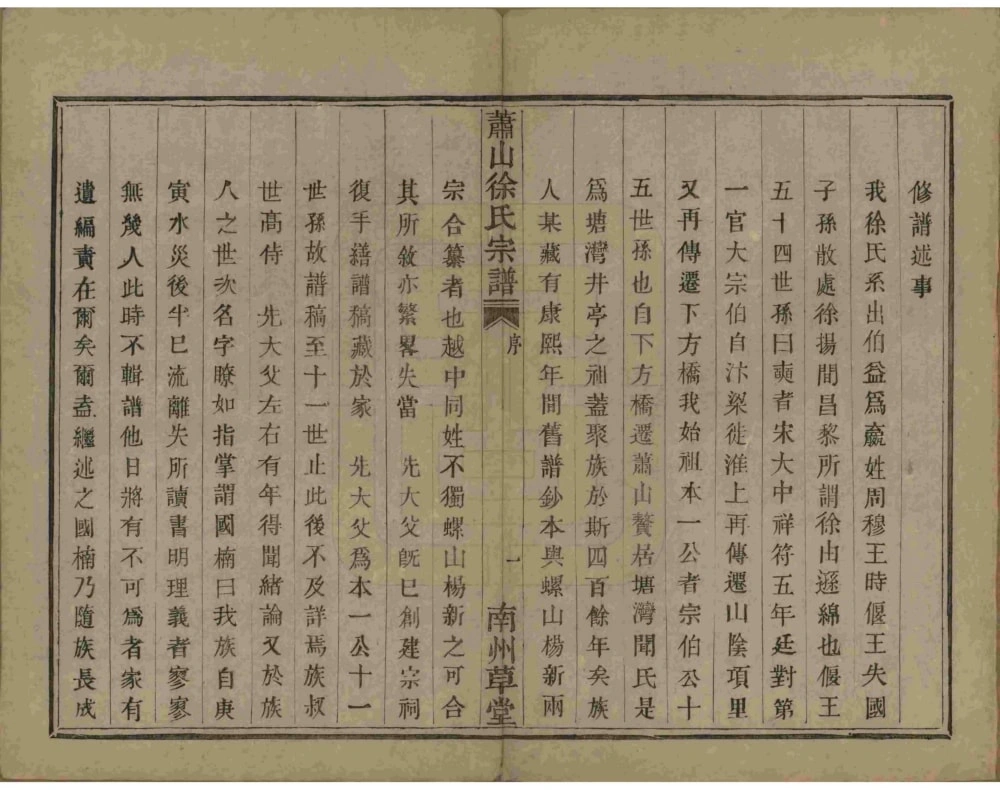 修譜述事
我徐氏系出伯益爲嬴姓周穆王時偃王失國
子孫散處徐揚間昌黎所謂徐由遜綿也偃王
五十四世孫曰奭者宋大中祥符五年廷對第
一官大宗伯自汴梁徙淮上再傳遷山陰項里
又再傳遷下方橋我始祖本一公者宗伯公十
五世孫也自下方橋遷蕭山贅居塘灣聞氏是
爲塘灣井亭之祖蓋聚族於斯四百餘年矣族
人某藏有康熙年間舊譜鈔本與螺山楊新兩
蕭山徐氏宗譜 序 一 南州草堂
宗合纂者也越中同姓不獨螺山楊新之可合
其所敘亦繁畧失當 先大父旣已創建宗祠
復手繕譜稿藏於家 先大父爲本一公十一
世孫故譜稿至十一世止此後不及詳焉族叔
世高侍 先大父左右有年得聞緒論又於族
人之世次名字瞭如指掌謂國楠曰我族自庚
寅水災後半已流離失所讀書明理義者寥寥
無幾人此時不輯譜他日將有不可爲者家有
遺編責在爾矣爾盍繼述之國楠乃隨族長成